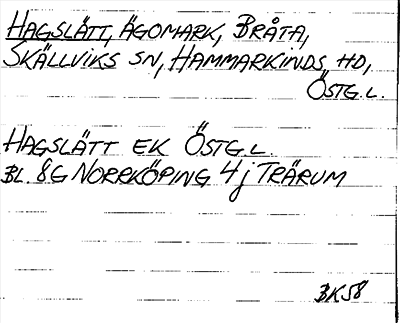 HAGSLÄTT, ÄGOMARK, BRÅTA,
SKÄLLVIKS SN, HAMMARKINDS HD,
ÖSTG.L.
HAGSLÄTT EK ÖSTG.L.
BL. 8G NORRKÖPING 4j TRÄRUM
BK58